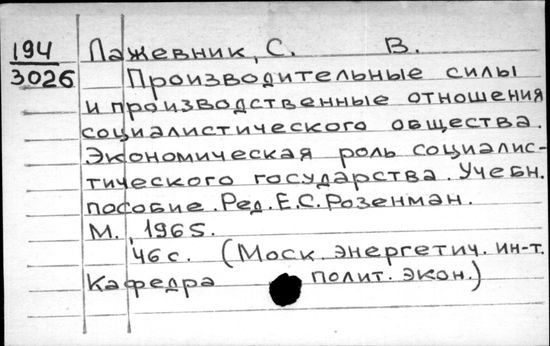 194 Лажевник, С. В.
3026 Производительные силы
и производственные отношения
социалистического общества.
Экономическая роль социалис-
тического государства. Учебн.
пособие. Ред. Е.С. Розенман.
М., 1965.
46 с. (Моск. энергетич. ин-т.
Кафедра полит. экон.)